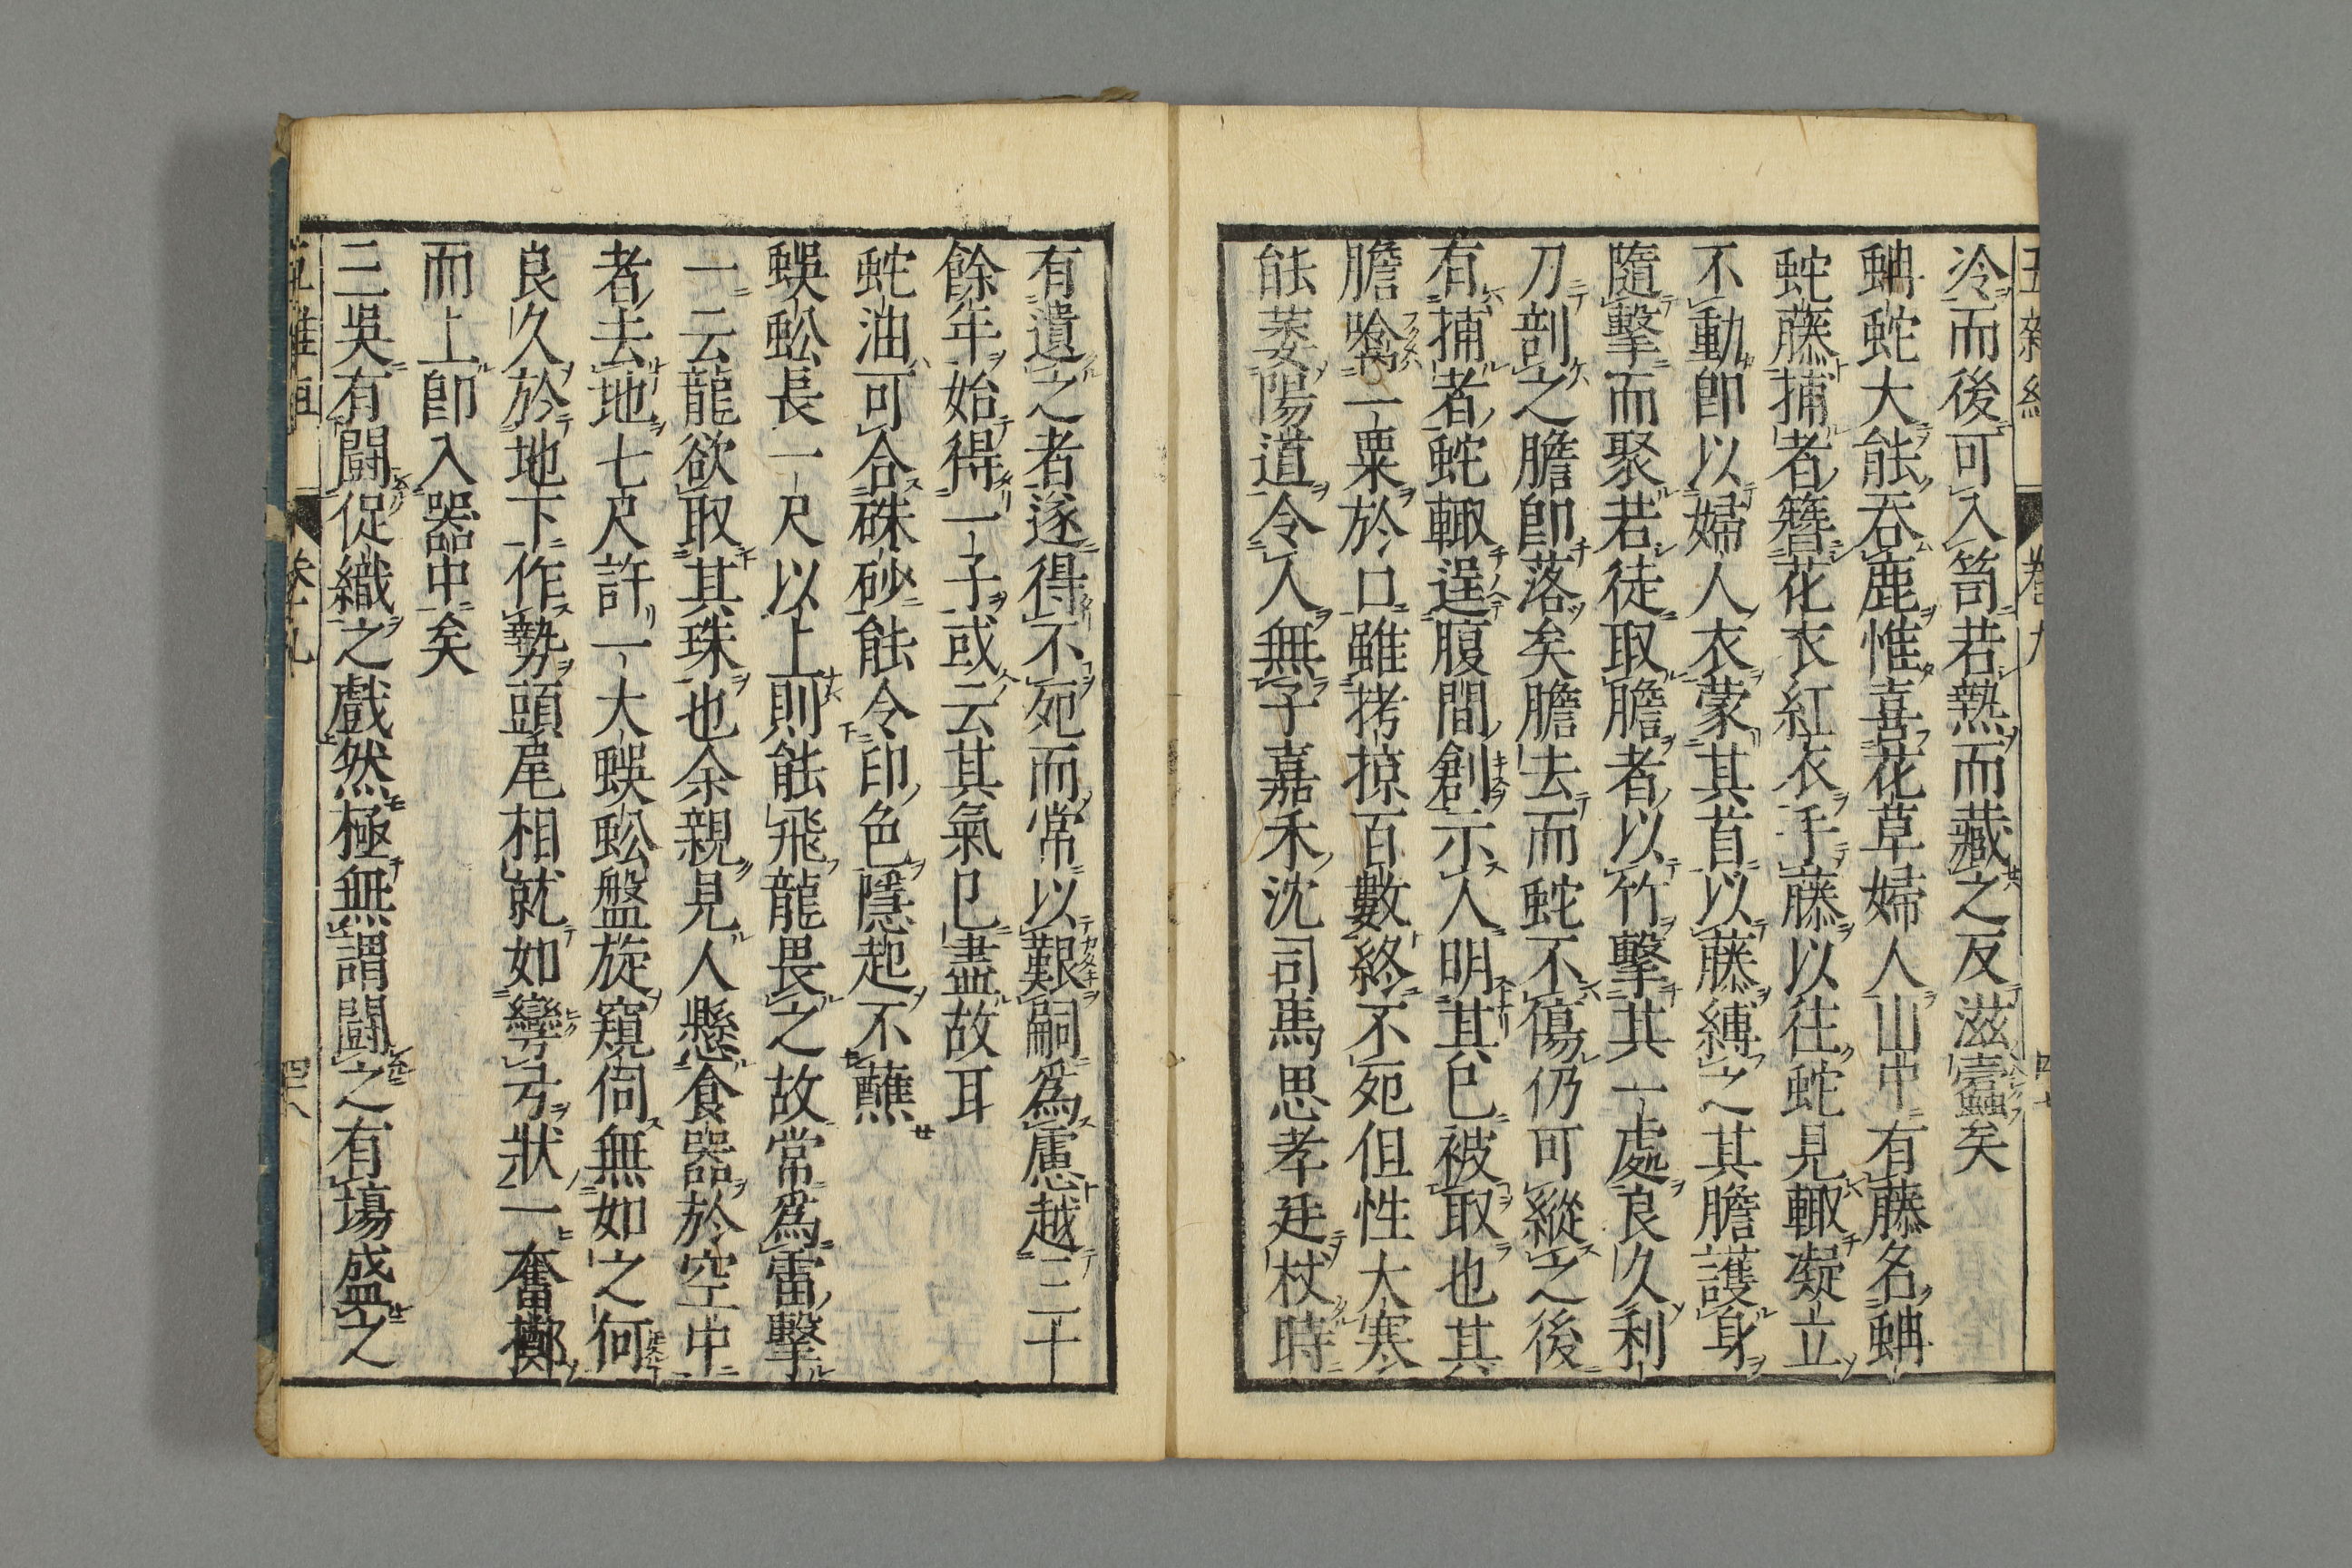 冷而後可入笥若熱而藏之反滋蠧矣
蚺蛇大能吞鹿惟喜花草婦人山中有藤名蚺
蛇藤捕者簪花衣紅衣手藤以往蛇見輙凝立
不動卽以婦人衣蒙其首以藤縛之其膽護身
隨擊而聚若徒取膽者以竹擊其一處良久利
刀剖之膽卽落矣膽去而蛇不傷仍可縱之後
有捕者蛇輙逞腹間創示人明其已被取也其
膽噙一粟於口雖拷掠百數終不死但性大寒
能萎陽道令人無子嘉禾沈司馬思孝廷杖時
有遺之者遂得不死而常以艱嗣爲慮越三十
餘年始得一子或云其氣已盡故耳
蛇油可合硃砂能令印色隱起不蘸
蜈蚣長一尺以上則能飛龍畏之故常爲雷擊
一云龍欲取其珠也余親見人懸食器於空中
者去地七尺許一大蜈蚣盤旋窺伺無如之何
良久於地下作勢頭尾相就如彎弓狀一奮擲
而上卽入器中矣
三吳有鬪促織之戲然極無謂鬪之有塲盛之
卷九